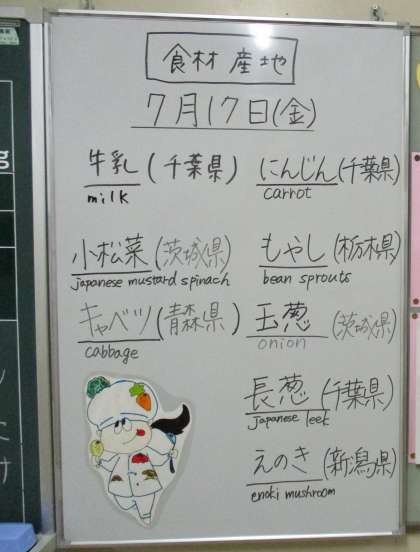 食材産地
7月17日(金)
牛乳(千葉県)
milk
にんじん(千葉県)
carrot
小松菜(茨城県)
japanese mustard spinach
もやし(栃木県)
bean sprouts
キャベツ(青森県)
cabbage
玉葱(茨城県)
onion
長葱(千葉県)
japanese leek
えのき(新潟県)
enoki mushroom